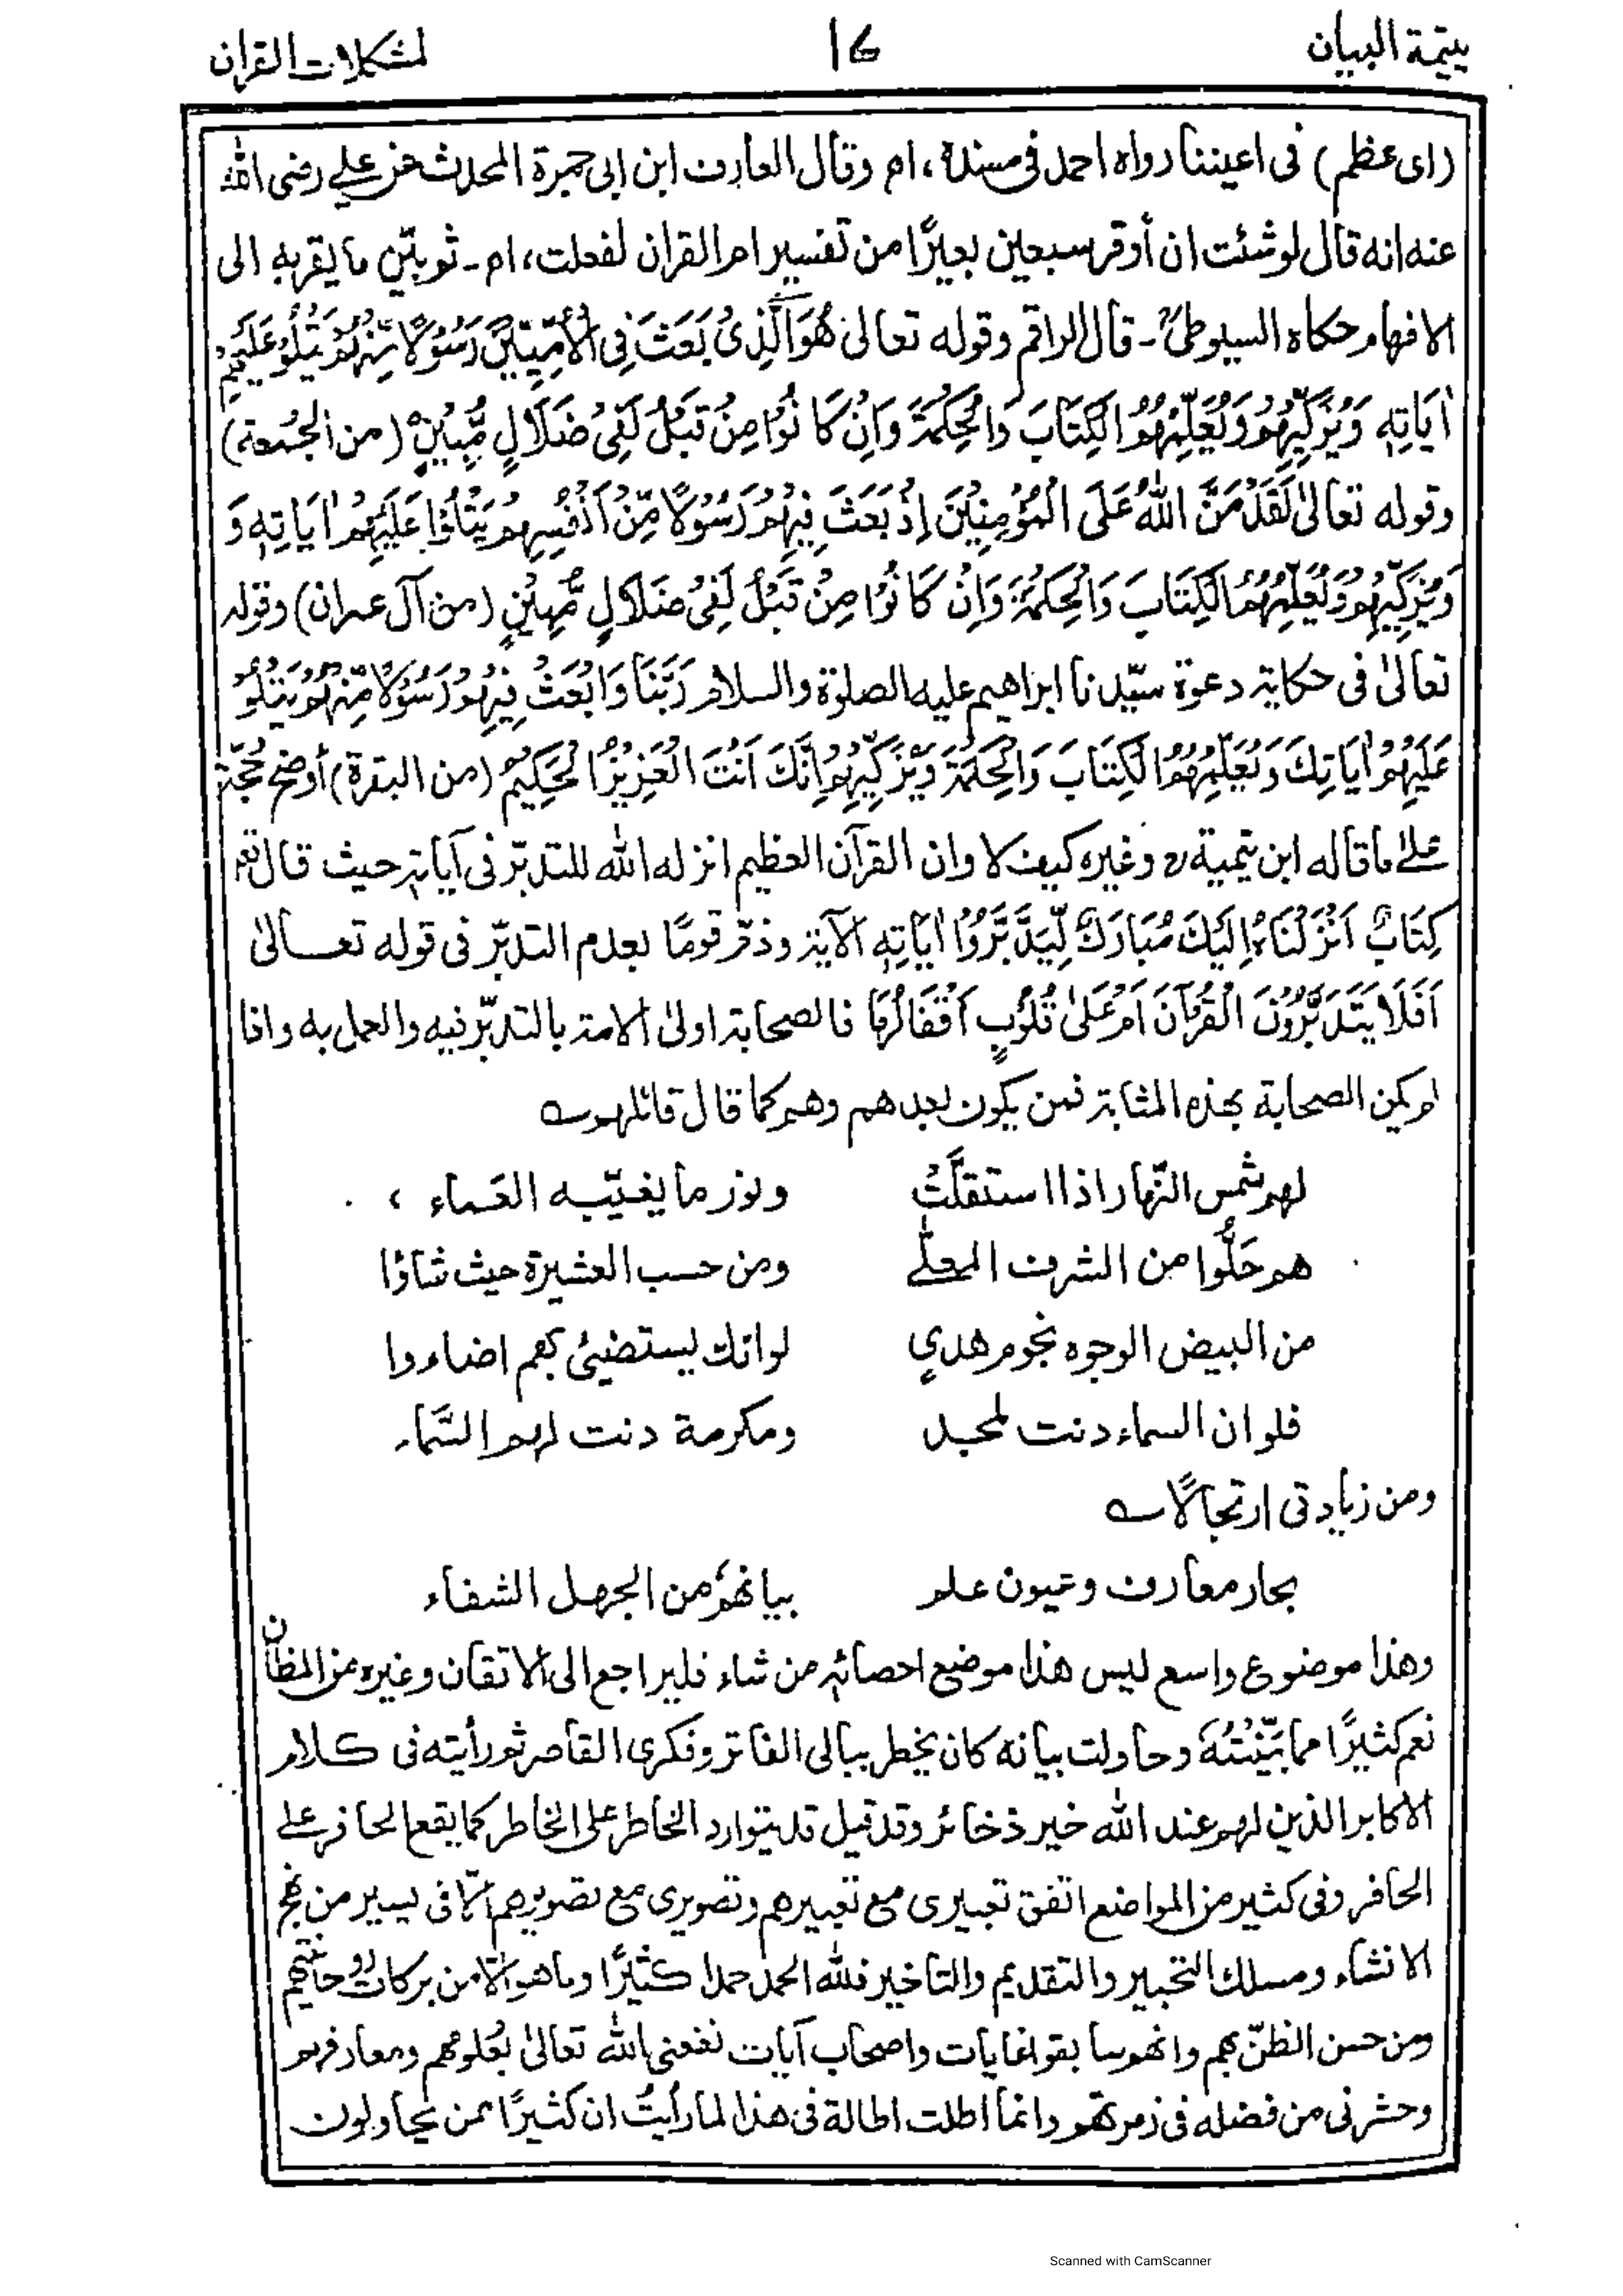 يتيمة البيان
١٦
لمشكلات القرآن
(اى عظم) فى اعيننا رواه احمد فى مسنده، اه وقال العارف ابن ابى جمرة المحدث عن علي رضى الله
عنه انه قال لو شئت ان أوقر سبعين بعيرًا من تفسير ام القرآن لفعلت، اه ـ ثم بيّن ما يقربه الى
الافهام حكاه السيوطىؒ ـ قال الراقم وقوله تعالىٰ هُوَ الَّذِىْ بَعَثَ فِى الْاُمِّيِّيْنَ رَسُوْلًا مِّنْهُمْ يَتْلُوْ عَلَيْهِمْ
اٰيَاتِهٖ وَيُزَكِّيْهِمْ وَيُعَلِّمُهُمُ الْكِتَابَ وَالْحِكْمَةَ وَاِنْ كَانُوْا مِنْ قَبْلُ لَفِىْ ضَلَالٍ مُّبِيْنٍ (من الجمعة)
وقوله تعالىٰ لَقَدْ مَنَّ اللّٰهُ عَلَى الْمُؤْمِنِيْنَ اِذْ بَعَثَ فِيْهِمْ رَسُوْلًا مِّنْ اَنْفُسِهِمْ يَتْلُوْا عَلَيْهِمْ اٰيَاتِهٖ وَ
وَيُزَكِّيْهِمْ وَيُعَلِّمُهُمُ الْكِتَابَ وَالْحِكْمَةَ وَاِنْ كَانُوْا مِنْ قَبْلُ لَفِىْ ضَلَالٍ مُّبِيْنٍ (من آل عمران) وقوله
تعالىٰ فى حكاية دعوة سيّدنا ابراهيم عليه الصلوة والسلام رَبَّنَا وَابْعَثْ فِيْهِمْ رَسُوْلًا مِّنْهُمْ يَتْلُوْ
عَلَيْهِمْ اٰيَاتِكَ وَيُعَلِّمُهُمُ الْكِتَابَ وَالْحِكْمَةَ وَيُزَكِّيْهِمْ اِنَّكَ اَنْتَ الْعَزِيْزُ الْحَكِيْمُ (من البقرة) أوضح حُجّة
علىٰ ما قاله ابن تيمية رح وغيره كيف لا وان القرآن العظيم انزله الله للتدبّر فى آياته حيث قال تع
كِتَابٌ اَنْزَلْنَاهُ اِلَيْكَ مُبَارَكٌ لِّيَدَّبَّرُوْا اٰيَاتِهٖ الآية وذمّ قومًا بعدم التدبّر فى قوله تعالىٰ
اَفَلَا يَتَدَبَّرُوْنَ الْقُرْآنَ اَمْ عَلىٰ قُلُوْبٍ اَقْفَالُهَا فالصحابة اولى الامة بالتدبّر فيه والعمل به واذا
لم يكن الصحابة بهذه المثابة فمن يكون بعدهم وهم كما قال قائلهم ؎
لهم شمس النّهار اذا استقلَّتْ ونور ما يغيّبه العَماء ،
هم حَلُّوا من الشرف المعلّٰے ومن حسب العشيرة حيث شاؤا
من البيض الوجوه نجوم هدىٍ لو انك يستضيئ بهم اضاءوا
فلو ان السماء دنت لمجد ومكرمة دنت لهم السَّماء
ومن زيادتى ارتجالًا ؎
بحار معارف وعيون علم بيانهمُ من الجهل الشفاء
وهذا موضوع واسع ليس هذا موضع احصائه من شاء فليراجع الى الاتقان وغيره من المظان
نعم كثيرًا مما بَيَّنْتُهُ وحاولت بيانه كان يخطر ببالى الفاتر وفكرى القاصر ثم رأيته فى كلام
الاكابر الذين لهم عند الله خير ذخائر وقد قيل قد يتوارد الخاطر على الخاطر كما يقع الحافر على
الحافر وفى كثير من المواضع اتفق تعبيرى مع تعبيرهم وتصويرى مع تصويرهم الّا فى يسير من نهج
الانشاء ومسلك التحبير والتقديم والتاخير فلله الحمد حمدا كثيرًا وما هو الّا من بركات روحانيتهم
ومن حسن الظنّ بهم وانهم سابقوا غايات واصحاب آيات نفعنى الله تعالىٰ بعُلومهم ومعارفهم
وحشرنى من فضله فى زمرتهم وانما اطلت اطالة فى هذا لما رأيتُ ان كثيرًا ممن يحاولون
Scanned with CamScanner